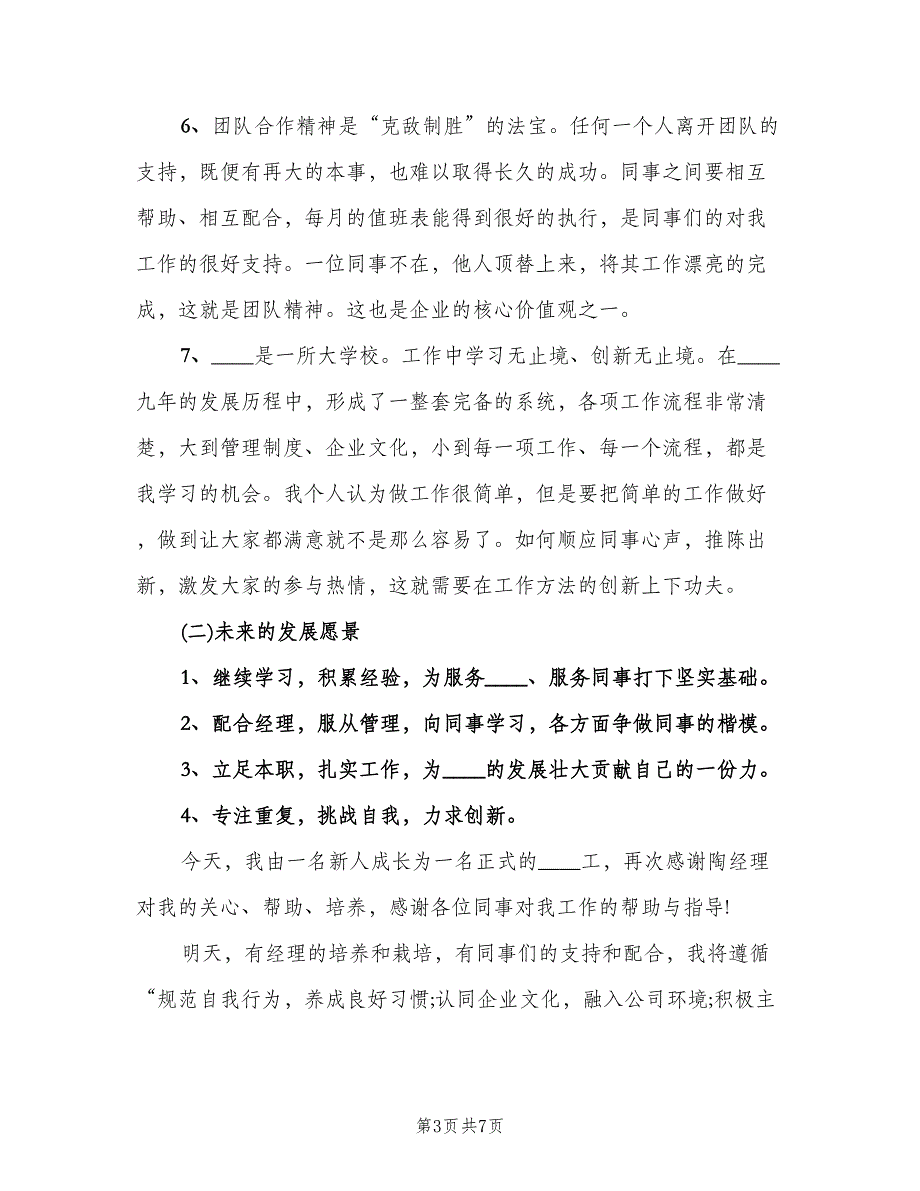 6、团队合作精神是“克敌制胜”的法宝。任何一个人离开团队的
支持，既便有再大的本事，也难以取得长久的成功。同事之间要相互
帮助、相互配合，每月的值班表能得到很好的执行，是同事们的对我
工作的很好支持。一位同事不在，他人顶替上来，将其工作漂亮的完
成，这就是团队精神。这也是企业的核心价值观之一。
7、____是一所大学校。工作中学习无止境、创新无止境。在____
九年的发展历程中，形成了一整套完备的系统，各项工作流程非常清
楚，大到管理制度、企业文化，小到每一项工作、每一个流程，都是
我学习的机会。我个人认为做工作很简单，但是要把简单的工作做好
，做到让大家都满意就不是那么容易了。如何顺应同事心声，推陈出
新，激发大家的参与热情，这就需要在工作方法的创新上下功夫。
(二)未来的发展愿景
1、继续学习，积累经验，为服务____、服务同事打下坚实基础。
2、配合经理，服从管理，向同事学习，各方面争做同事的楷模。
3、立足本职，扎实工作，为____的发展壮大贡献自己的一份力。
4、专注重复，挑战自我，力求创新。
今天，我由一名新人成长为一名正式的____工，再次感谢陶经理
对我的关心、帮助、培养，感谢各位同事对我工作的帮助与指导!
明天，有经理的培养和栽培，有同事们的支持和配合，我将遵循
“规范自我行为，养成良好习惯;认同企业文化，融入公司环境;积极主
第3页 共7页